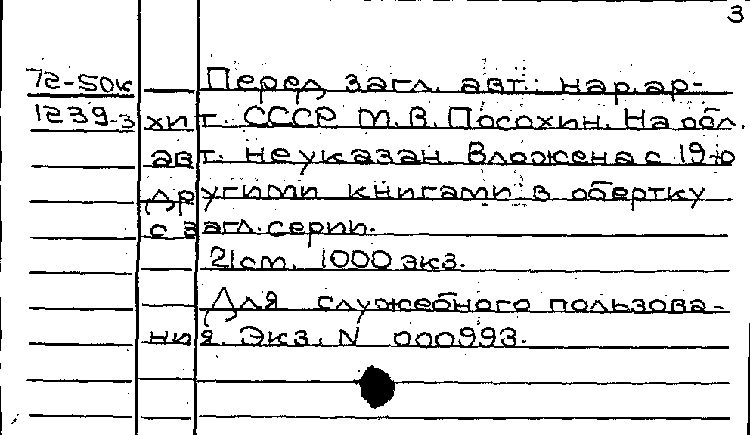 3
72-50к Перед загл. авт.: нар. ар-
1239-3 хит. СССР М.В. Посохин. На обл.
авт. не указан. Вложена с 19-ю
другими книгами в обертку
с загл. серии.
21 cm. 1000 экз.
Для служебного пользова-
ния. Экз. N 000993.